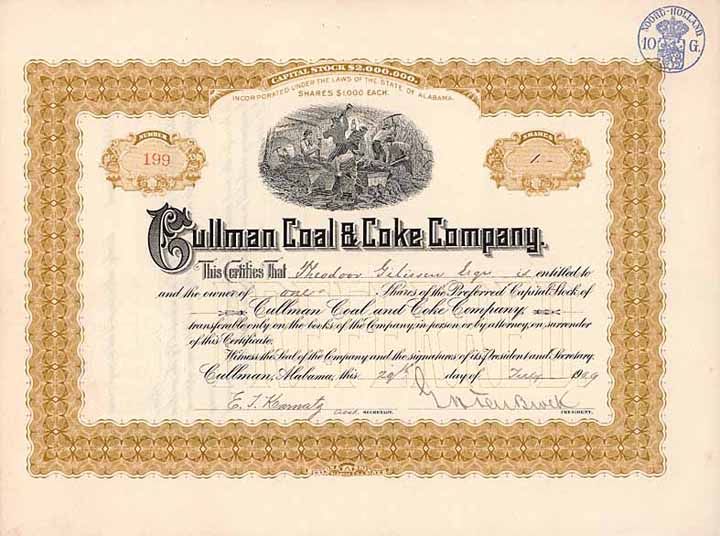 NOORD-HOLLAND
10 G.
CAPITAL STOCK $2,000,000.
INCORPORATED UNDER THE LAWS OF THE STATE OF ALABAMA.
SHARES $1000 EACH.
NUMBER
199
SHARES
1
Cullman Coal & Coke Company.
This Certifies That Theodoor Gilissen Esqr. is entitled to
and the owner of one Shares of the Preferred Capital Stock of
Cullman Coal and Coke Company,
transferable only on the books of the Company in person or by attorney, on surrender
of this Certificate.
Witness the Seal of the Company and the signatures of its President and Secretary.
Cullman, Alabama, this 29th day of July 1909
E. J. Karnatz Asst. SECRETARY. G H Ten Broek PRESIDENT.